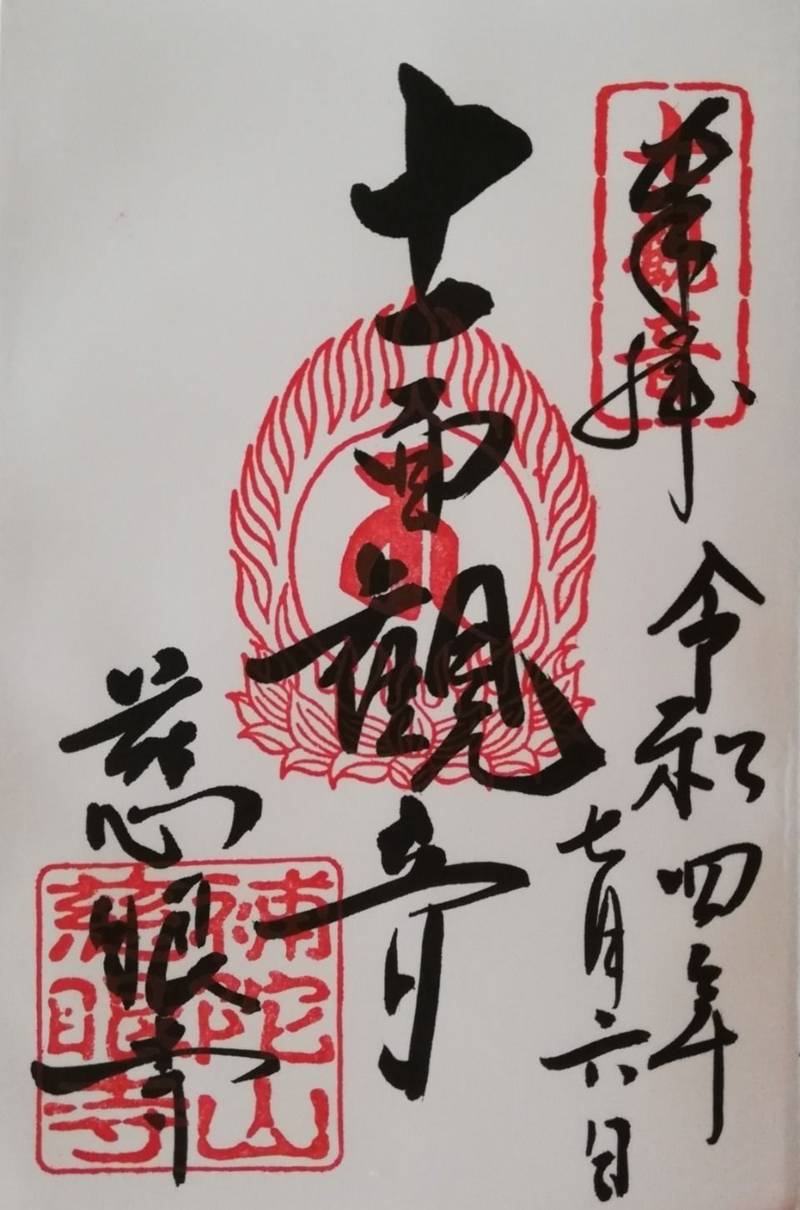 奉拝
令和四年
七月六日
十一面観音
慈眼寺
補陀山
慈眼寺